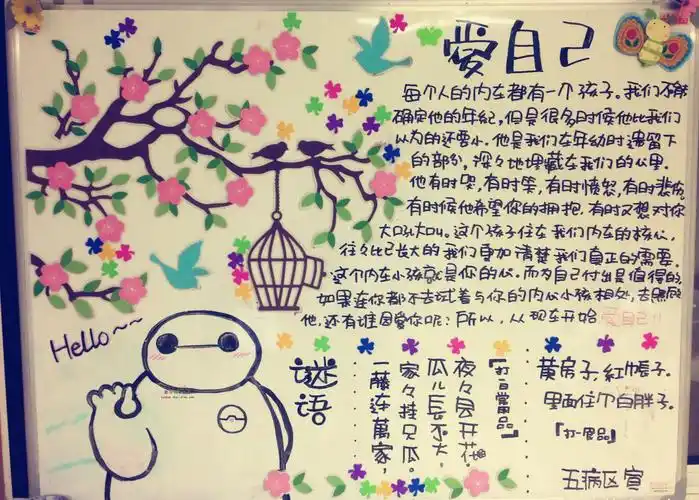 愛自己
每个人的内在都有一个孩子。我们不能
确定他的年纪,但是很多时候他比我们
以为的还要小。他是我们在年幼时遗留下
的部分,深々地埋藏在我们的心里。
他有时哭,有时笑,有时愤怒,有时悲伤
有时候他希望你的拥抱,有时又想对你
大吼大叫。这个孩子住在我们内在的核心,
往々比已长大的我们更加清楚我们真正的需要。
这个内在小孩就是你的心。而为自己付出是值得的,
如果连你都不去试着与你的内心小孩相处,去照顾
他,还有谁因爱你呢;所以,从现在开始爱自己!!
Hello~~
谜语
一藤连萬家,
家々挂只瓜。
瓜儿長不大,
夜々会开花。
『打一日常用品』
黄房子,紅帐子.
里面住个白胖子.
『打一食品』
五病区宣